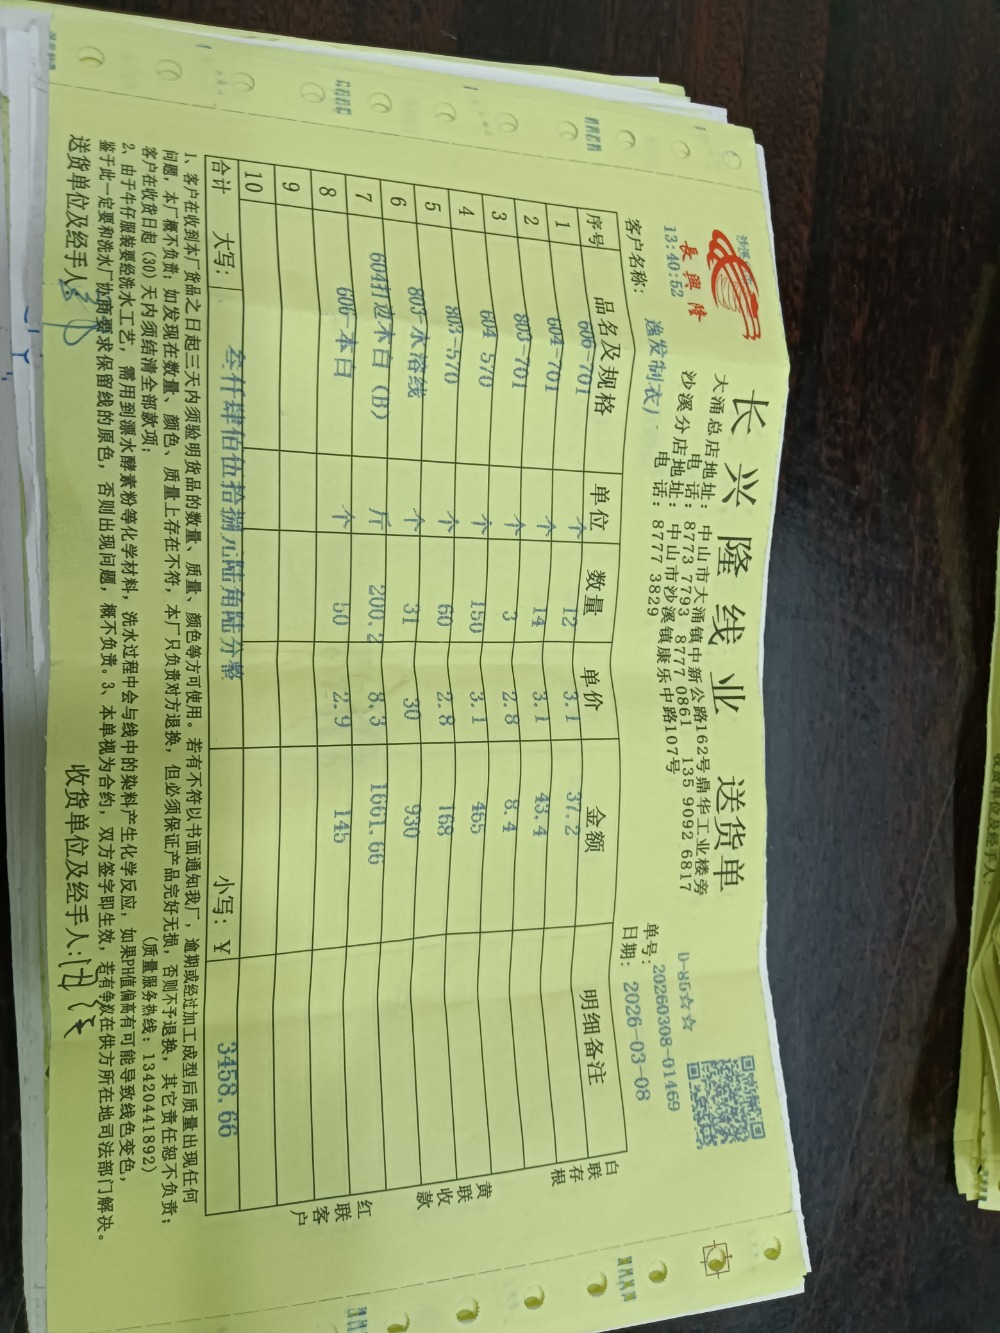 長興隆
长兴隆线业 送货单
大涌总店地址：中山市大涌镇中新公路162号鼎华工业楼旁
电话：8773 7793 8777 0861 135 9092 6817
沙溪分店地址：中山市沙溪镇康乐中路107号
电话：8777 3829
13:40:52
D-85☆☆
单号：20260308-01469
客户名称：逸发制衣厂
日期：2026-03-08
序号 品名及规格 单位 数量 单价 金额 明细备注
1 606-701 个 12 3.1 37.2
2 604-701 个 14 3.1 43.4
3 803-701 个 3 2.8 8.4
4 604 570 个 150 3.1 465
5 803-570 个 60 2.8 168
6 803-水溶线 个 31 30 930
7 604打边本白（B） 斤 200.2 8.3 1661.66
8 606-本白 个 50 2.9 145
9
10
合计 大写：叁仟肆佰伍拾捌元陆角陆分整 小写：￥ 3458.66
白联存根
黄联收款
红联客户
1、客户在收到本厂货品之日起三天内须验明货品的数量、质量、颜色等方可使用。若有不符以书面通知我厂，逾期或经过加工成型后质量出现任何
问题，本厂概不负责；如发现在数量、颜色、质量上存在不符，本厂只负责对方退换，但必须保证产品完好无损，否则不予退换，其它责任恕不负责；
客户在收货日起（30）天内须结清全部款项； （质量服务热线：13420441892）
2、由于牛仔服装要经洗水工艺，需用到漂水酵素粉等化学材料，洗水过程中会与线中的染料产生化学反应，如果PH值偏高有可能导致线色变色，
鉴于此一定要和洗水厂协商要求保留线的原色，否则出现问题，概不负责。3、本单视为合约，双方签字即生效，若有争议在供方所在地司法部门解决。
送货单位及经手人：
收货单位及经手人：